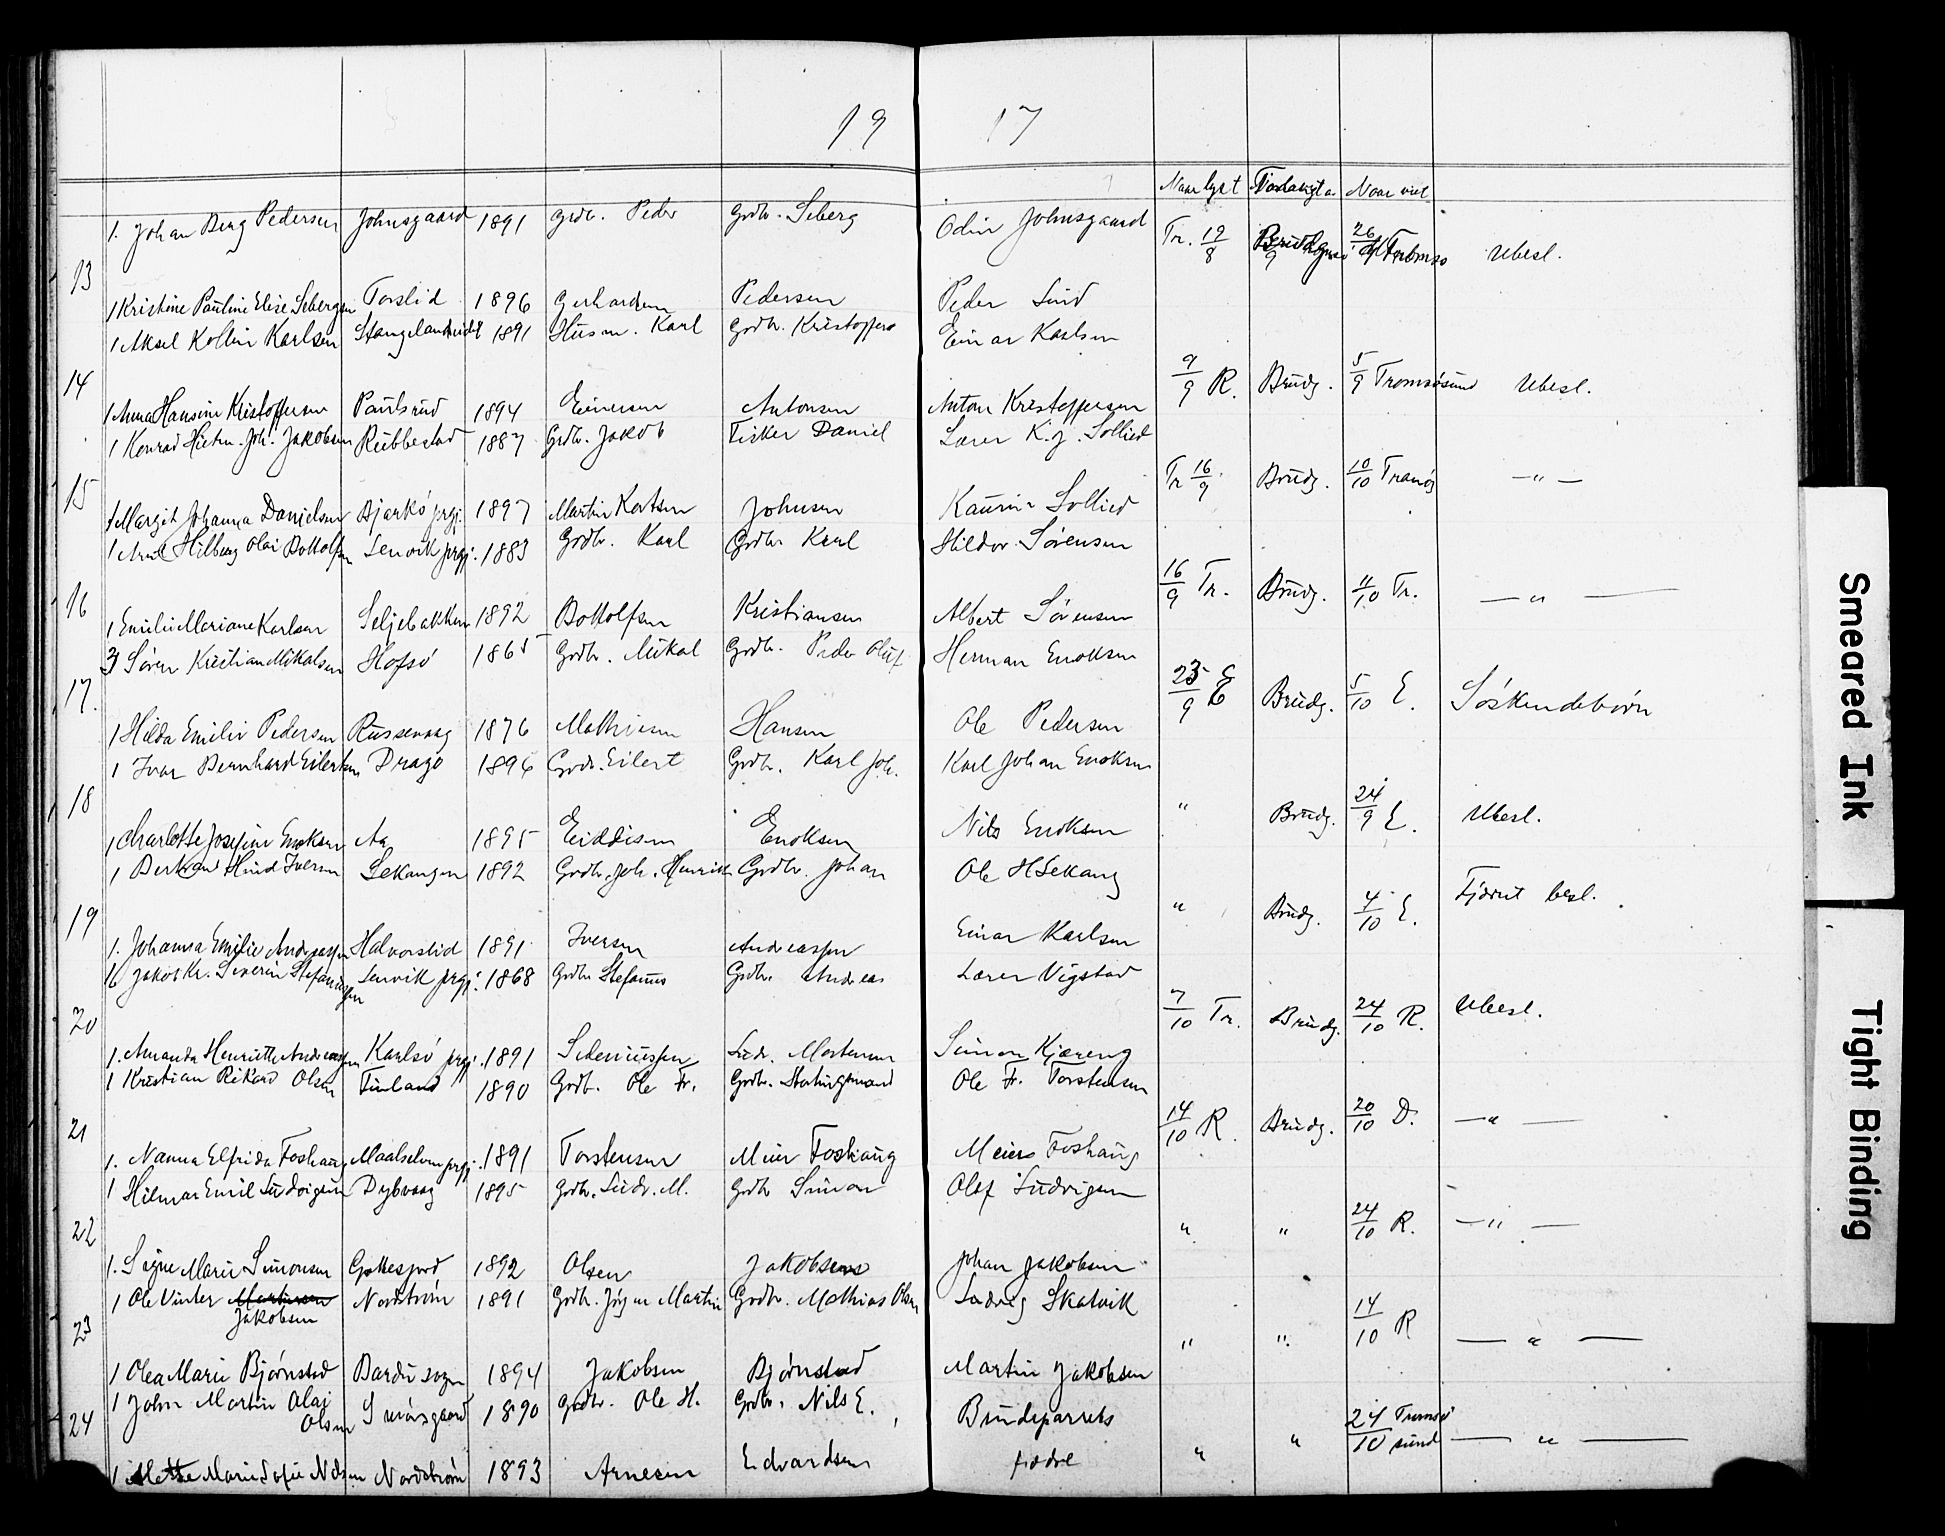 19 17
Naar lyst Forlangt a. Naar viet
1. Johan Berg Pedersen Johnsgaard 1891 Grdb. Peder Grdb. Seberg Odin Johnsgaard Tr. 19/8 26/9 Tromsø Ubesl.
13
1 Kristine Pauline Elise Sebergsen Torslid 1896 Gerhardsen Pedersen Peder Lind
1 Aksel Kollin Karlsen Stangelandseidet 1891 Husm. Karl Grdb. Kristoffers Einar Karlsen
14 9/9 R. Brudg. 5/9 Tromsøsund Ubesl.
1 Anna Hansine Kristoffersen Paulsrud 1894 Einersen Antonsen Anton Kristoffersen
1 Konrad Hartm. Joh. Jakobsen Rubbestad 1887 Grdb. Jakob Fisker Daniel Lærer K. J. Sollied
15 Tr 16/9 Brudg. 10/10 Tranøy — " —
1 Margit Johanna Danielsen Bjarkö prgj. 1897 Martin Kortsen Johnsen Kaurin Sollied
1 Arnt Hilberg Olai Bottolfsen Lenvik prgj. 1883 Grdb. Karl Grdb. Karl Hildor Sørensen
16 16/9 Tr. Brudg. 11/10 Tr. — " —
1 Emilie Mariane Karlsen Seljebakken 1892 Bottolfsen Kristiansen Albert Sørensen
3 Søren Kristian Mikalsen Hofsö 1865 Grdb. Mikal Grdb. Peder Oluf Herman Enoksen
17. 25/9 E Brudg. 5/10 E. Söskendebörn
1 Hilda Emilie Pedersen Russevaag 1876 Mathisen Hansen Ole Pedersen
1 Ivar Bernhard Eilertsen Dragö 1896 Grdb. Eilert Grdb. Karl Joh. Karl Johan Enoksen
18 " Brudg. 24/9 E. Ubesl.
1 Charlotte Josefine Enoksen Aa 1895 Eiddisen Enoksen Nils Enoksen
1 Bertrand Hind Iversen Lekangen 1892 Grdb. Joh. Henrik Grdb. Johan Ole H Lekang
19 " Brudg. 4/10 E. Fjærnt besl.
1. Johanna Emilie Andreassen Halvorslid 1891 Iversen Andreassen Einar Karlsen
6 Jakob Kr. Severin Stefanussen Lenvik prgj. 1868 Grdb. Stefanus Grdb. Andreas Lærer Vigstad
20 7/10 Tr. Brudg. 24/10 R. Ubesl.
1. Amanda Henriette Andreassen Karlsö prgj. 1891 Ludv. Mortensen Simon Kjæreng
1 Kristian Rikard Olsen Finland 1890 Grdb. Ole Fr. Grdb. Ole Fr. Torstensen
21 14/10 R. Brudg. 20/10 D. — " —
1. Nanna Elfrida Foshaug Maalselven prgj. 1891 Torstensen Meier Foshaug Meier Foshaug
1 Hilmar Emil Ludvigsen Dybvaag 1895 Grdb. Ludv. M. Grdb. Simon Olaf Ludvigsen
22 " " 24/10 R. — " —
1. Signe Marie Simonsen Gjøkesjord 1892 Olsen Jakobsens Johan Jakobsen
1 Ole Vinter Martinsen Nordstrøm 1891 Grdb. Jørgen Martin Grdb. Mathias Olsen Ludvig Skatvik
Jakobsen
23 " " 14/10 R — " —
1 Olea Marie Bjørnstad Bardu sogn 1894 Jakobsen Bjørnstad Martin Jakobsen
1 John Martin Olai
Olsen Smørsgaard 1890 Grdb. Ole H. Grdb. Nils E. Brudeparrets
24 " " 24/10 Tromsösund — " —
1 Mette Marie Sofie Nilsen Nordstrøm 1893 Arnesen Edvardsen fædre
Smeared Ink
Tight Binding